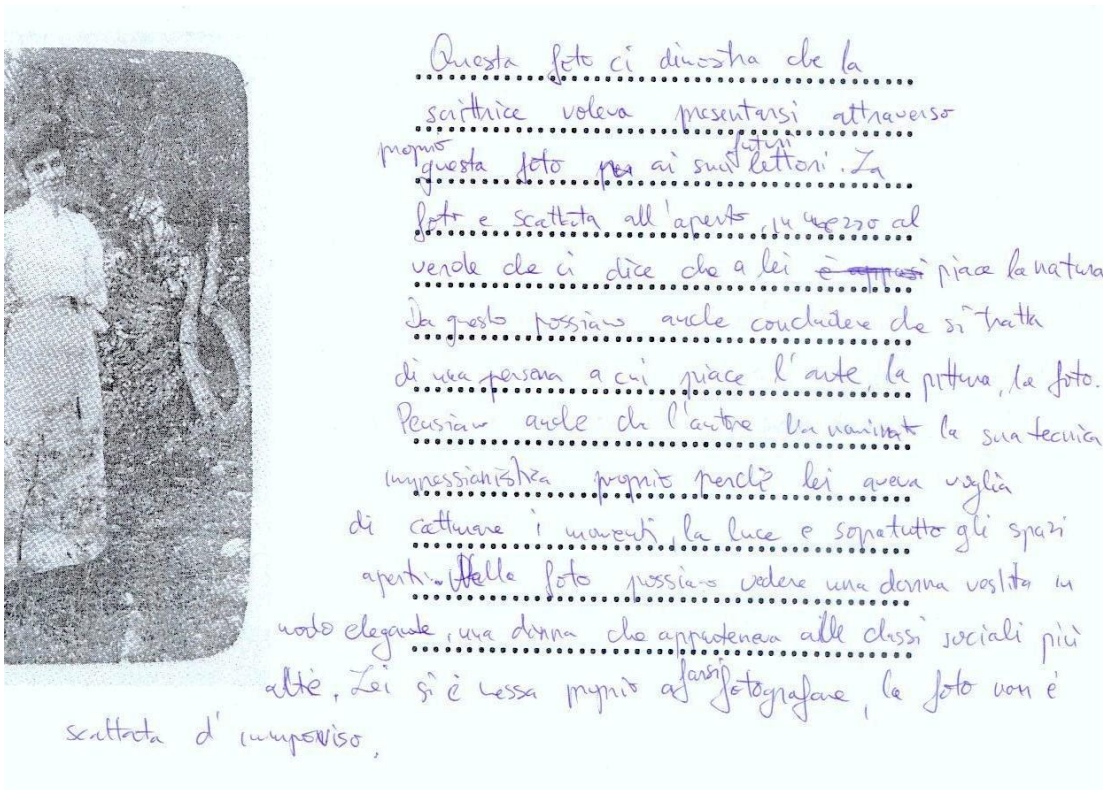 Questa foto ci dimostra che la
scrittrice voleva presentarsi attraverso
proprio questa foto ai suoi futuri lettori. La
foto e scattata all'aperto, in mezzo al
verde che ci dice che a lei piace la natura
Da questo possiamo anche concludere che si tratta
di una persona a cui piace l'arte, la pittura, la foto.
Pensiamo anche che l'autore la sua tecnica
impressionistica proprio perchè lei aveva voglia
di catturare i momenti, la luce e sopratutto gli spazi
aperti. Nella foto possiamo vedere una donna vestita in
modo elegante, una donna che apparteneva alle classi sociali più
alte. Lei si è messa proprio a farsi fotografare, la foto non è
scattata d'improvviso.